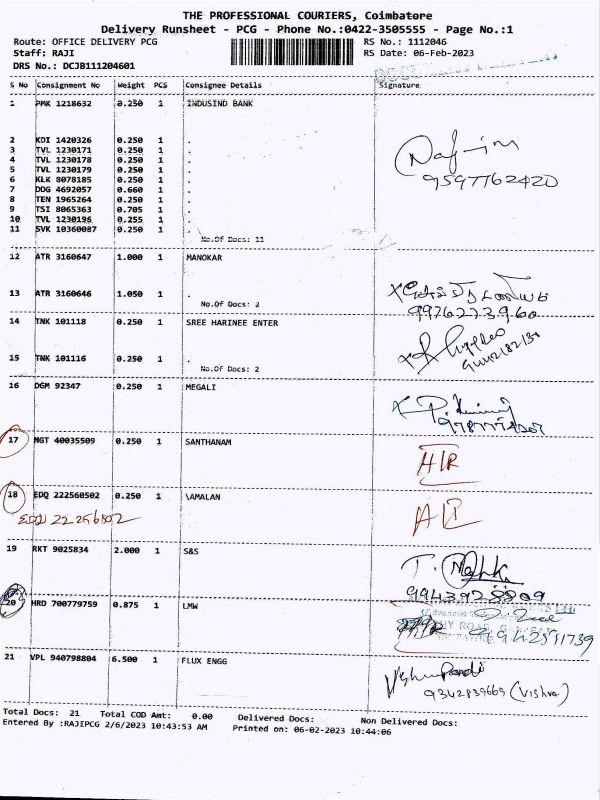 THE PROFESSIONAL COURIERS, Coimbatore
Delivery Runsheet - PCG - Phone No.:0422-3505555 - Page No.:1
Route: OFFICE DELIVERY PCG RS No.: 1112046
Staff: RAJI RS Date: 06-Feb-2023
DRS No.: DCJB111204601
S No Consignment No Weight PCS Consignee Details Signature
1 PMK 1218632 0.250 1 INDUSIND BANK
2 KDI 1420326 0.250 1 .
3 TVL 1230171 0.250 1 .
4 TVL 1230178 0.250 1 .
5 TVL 1230179 0.250 1 .
6 KLK 8078185 0.250 1 .
7 DDG 4692057 0.660 1 .
8 TEN 1965264 0.250 1 .
9 TSI 8065363 0.705 1 .
10 TVL 1230196 0.255 1 .
11 SVK 10360087 0.250 1 .
9597762420
No.Of Docs: 11
12 ATR 3160647 1.000 1 MANOKAR
13 ATR 3160646 1.050 1 .
No.Of Docs: 2
9976273960
14 TNK 101118 0.250 1 SREE HARINEE ENTER
15 TNK 101116 0.250 1 .
No.Of Docs: 2
16 DGM 92347 0.250 1 MEGALI
17 MGT 40035509 0.250 1 SANTHANAM
18 EDQ 222560502 0.250 1 \AMALAN
19 RKT 9025834 2.000 1 S&S
9943928809
20 HRD 700779759 0.875 1 LMW
21 VPL 940798804 6.500 1 FLUX ENGG
9342839669 (Vishva)
Total Docs: 21 Total COD Amt: 0.00 Delivered Docs: Non Delivered Docs:
Entered By :RAJIPCG 2/6/2023 10:43:53 AM Printed on: 06-02-2023 10:44:06